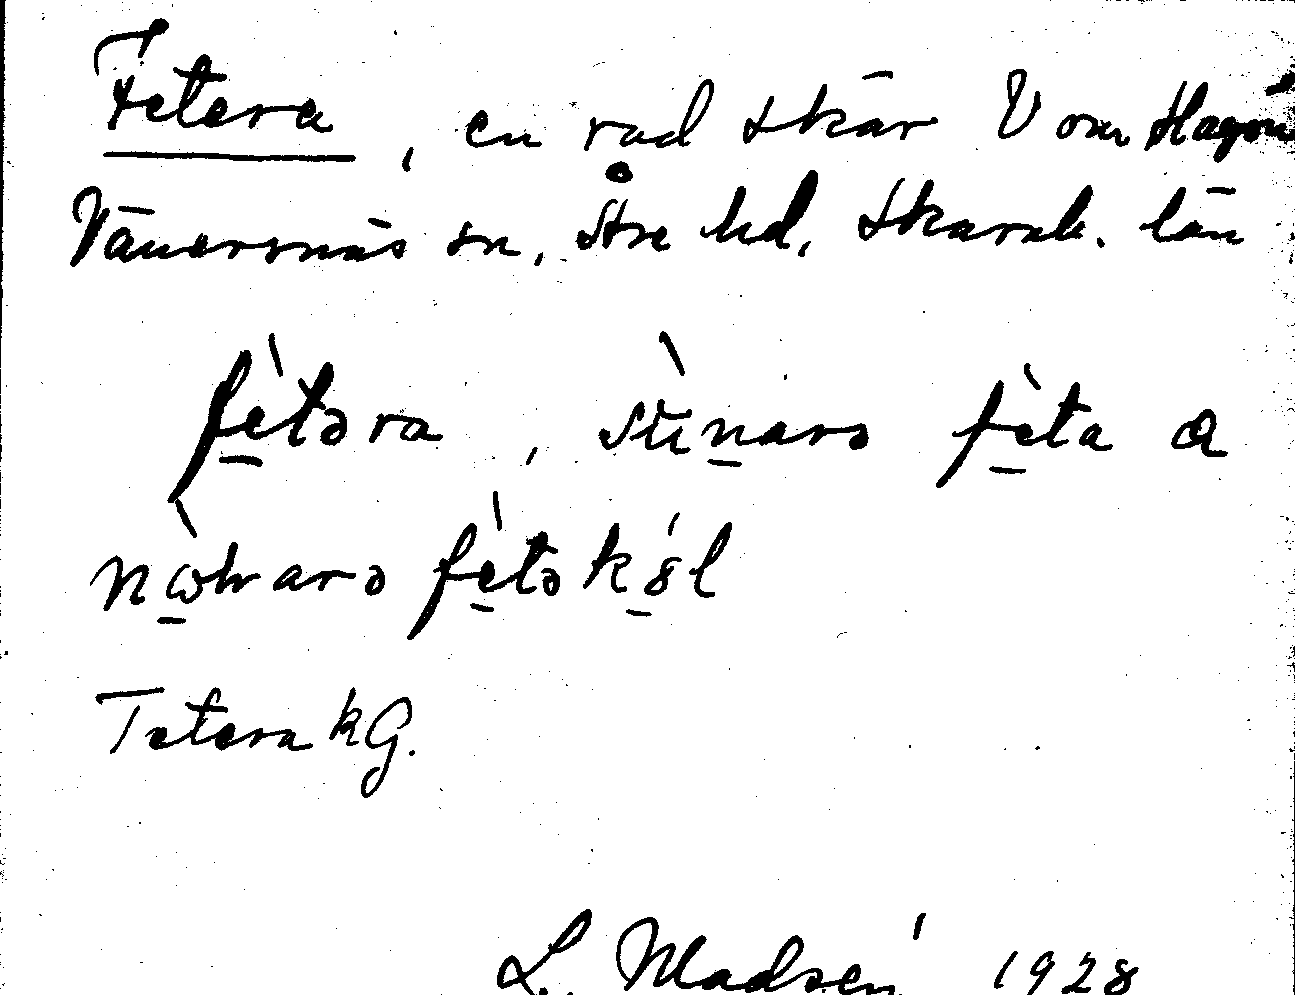 Fetera, en rad skär V om Hagön
Vänersnäs sn, Åse hd, Skarab. län.
fètəra, stùnarə fèta a
fètə
Tetera kG.
L. Madsén 1928